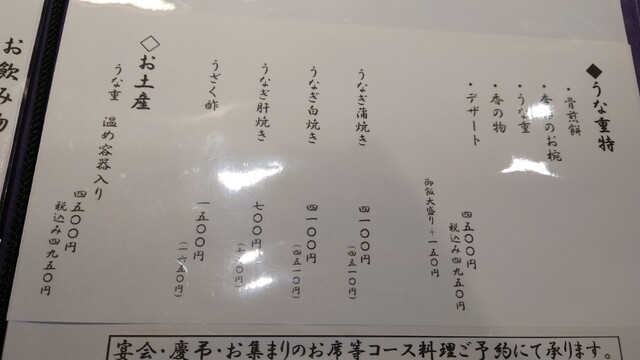 ◆うな重特
・骨煎餅
・季節のお椀
・うな重
・香の物
・デザート
四五〇〇円
税込み四九五〇円
御飯大盛り+一五〇円
うなぎ蒲焼き 四一〇〇円
(四五一〇円)
うなぎ白焼き 四一〇〇円
(四五一〇円)
うなぎ肝焼き 七〇〇円
うざく酢 一五〇〇円
(一六五〇円)
◇お土産
うな重 温め容器入り
四五〇〇円
税込み四九五〇円
お飲み物
宴会・慶弔・お集まりのお席等コース料理ご予約にて承ります。